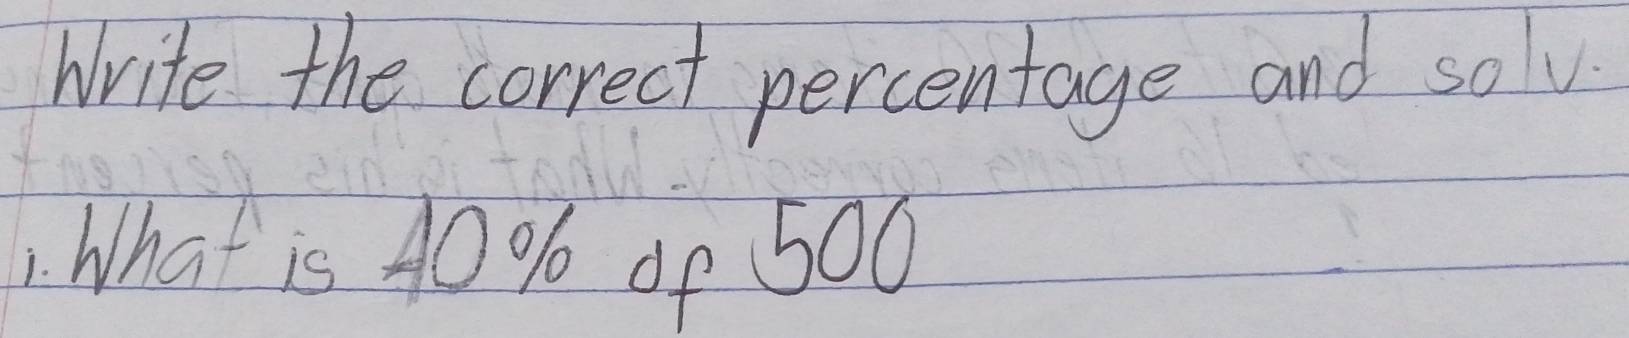 Write the correct percentage and solv.
1. What is 40% of 500